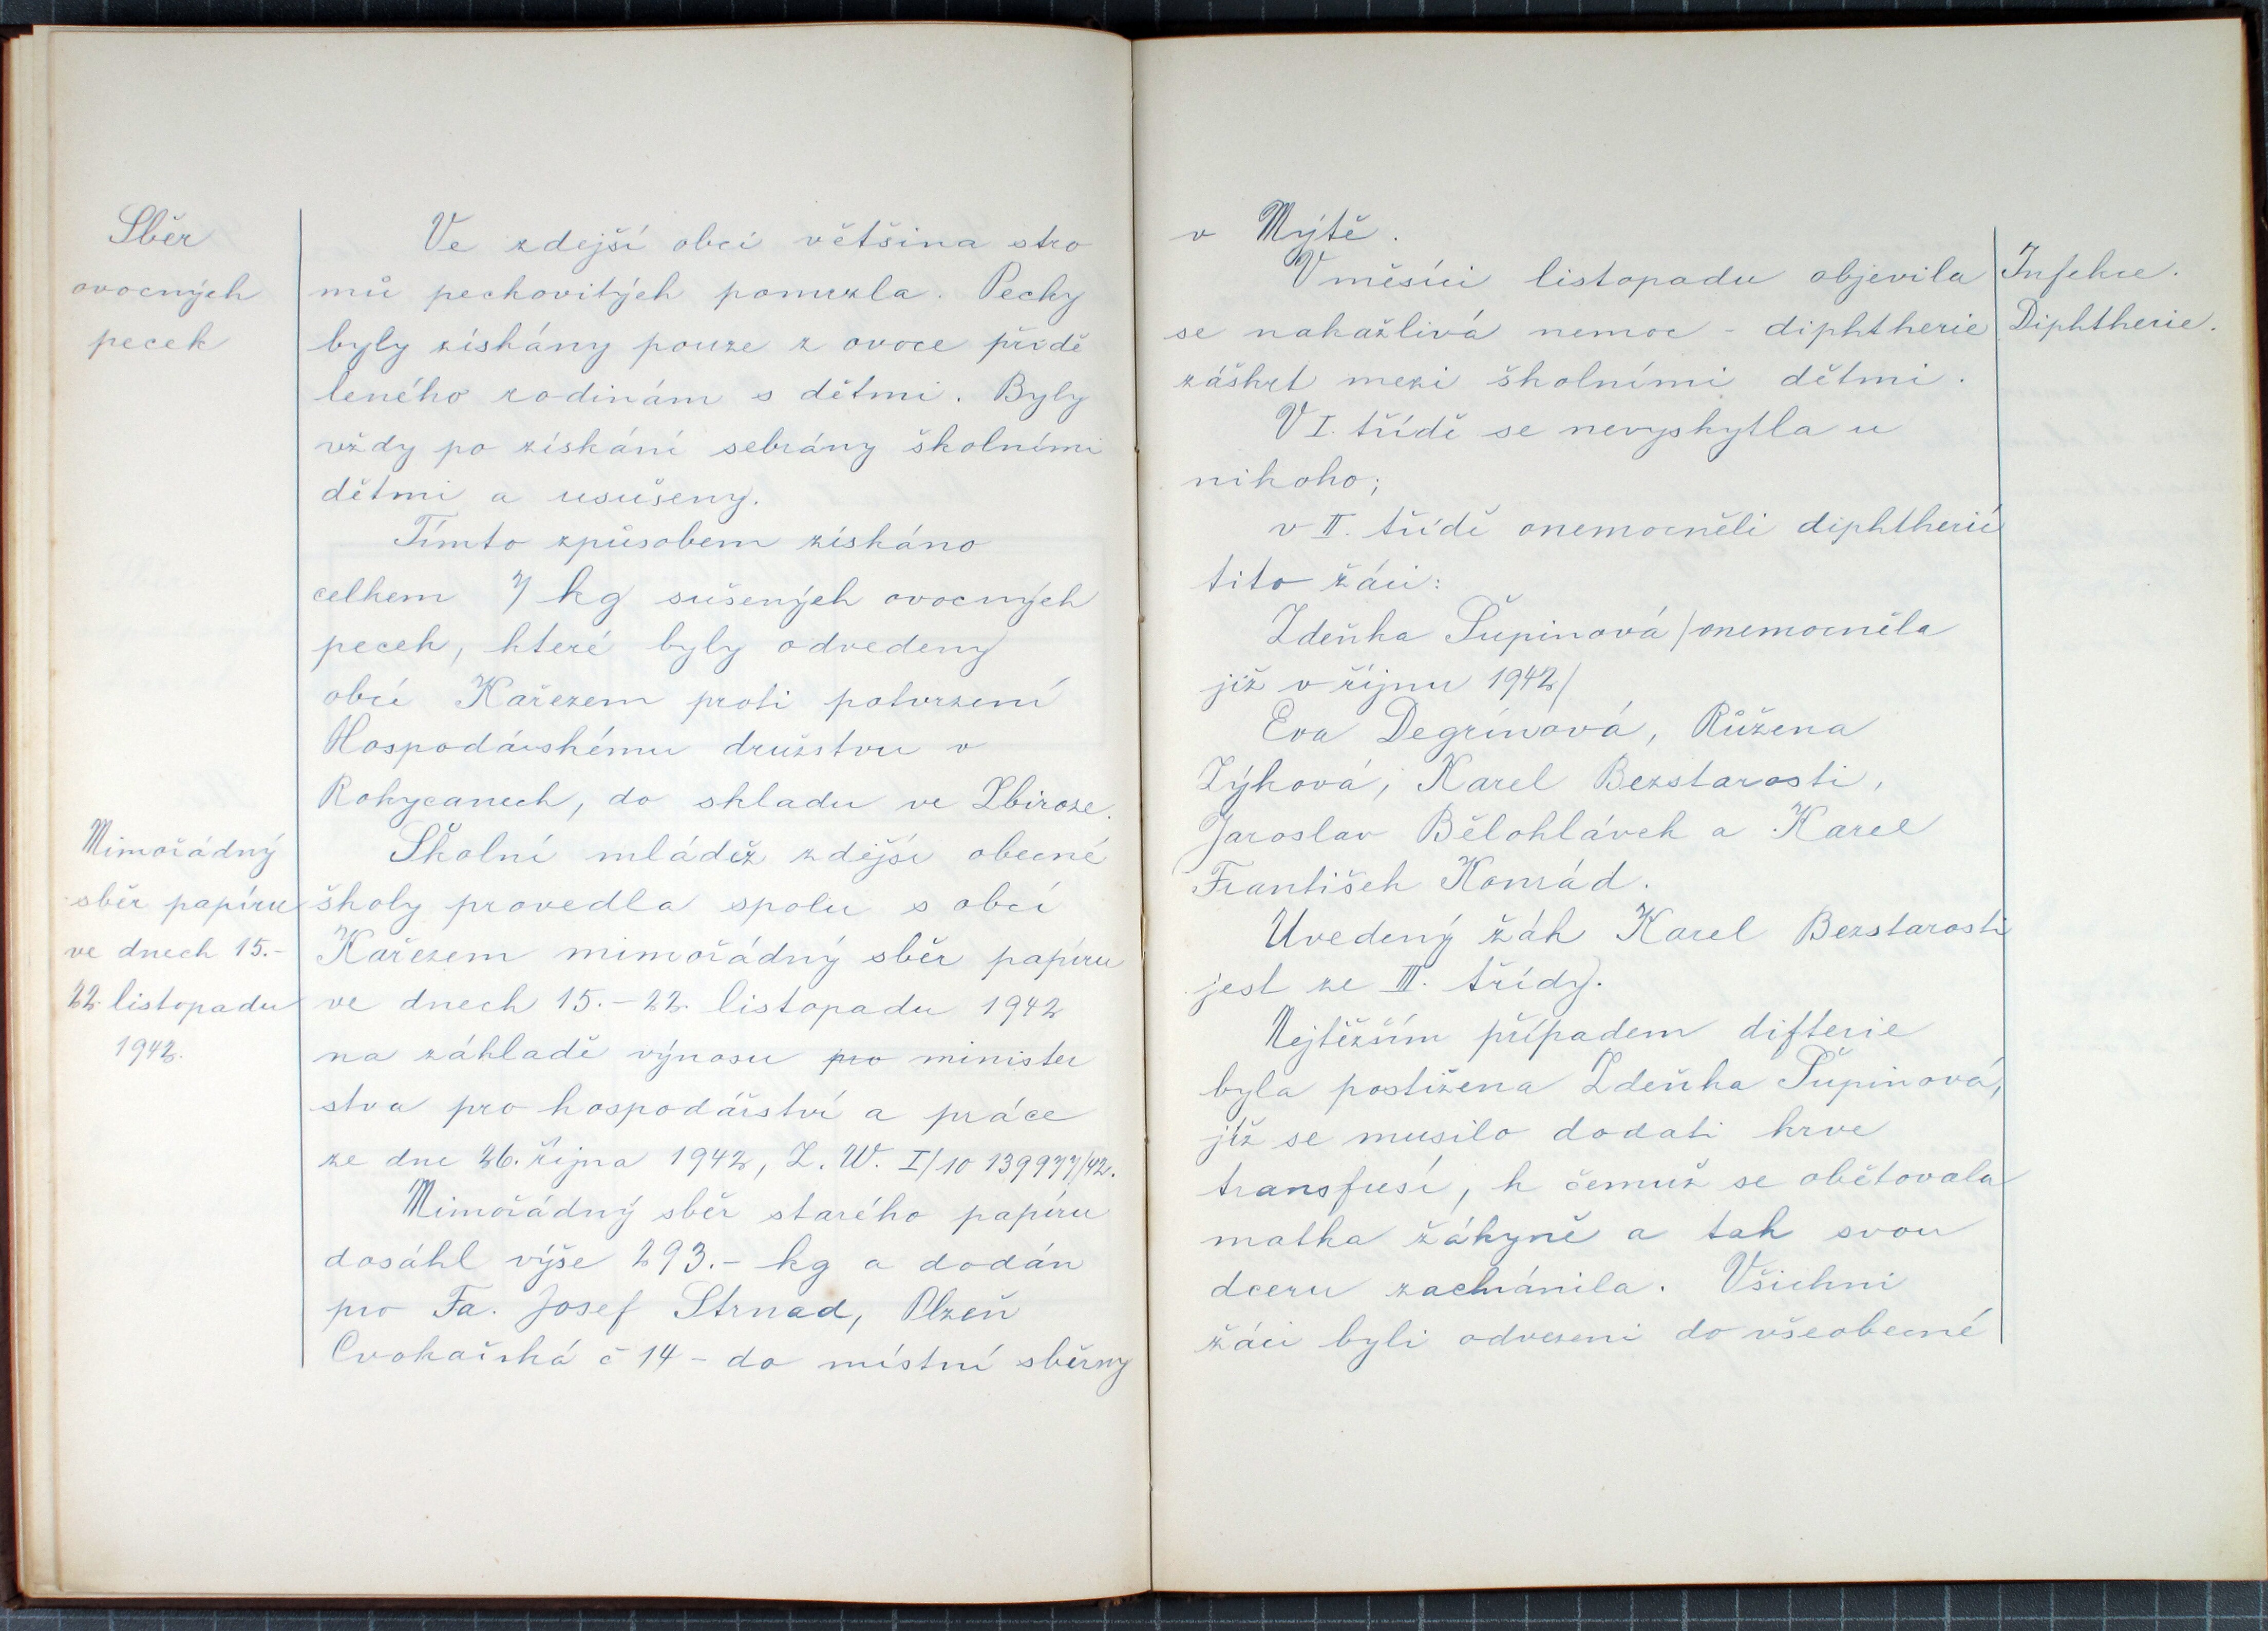 Sběr
ovocných
pecek
Ve zdejší obci většina stro
mů peckovitých pomrzla. Pecky
byly získány pouze z ovoce přidě
leného rodinám s dětmi. Byly
vždy po získání sebrány školními
dětmi a usušeny.
Tímto způsobem získáno
celkem 7 kg sušených ovocných
pecek, které byly odvedeny
obcí Kařezem proti potvrzení
Hospodářskému družstvu v
Rokycanech, do skladu ve Zbiroze.
Mimořádný
sběr papíru
ve dnech 15.-
22. listopadu
1942.
Školní mládež zdejší obecné
školy provedla spolu s obcí
Kařezem mimořádný sběr papíru
ve dnech 15.-22. listopadu 1942
na základě výnosu pro minister
stva pro hospodářství a práce
ze dne 26. října 1942, Z. W. I/10 139977/42.
Mimořádný sběr starého papíru
dosáhl výše 293.- kg a dodán
pro Fa. Josef Strnad, Plzeň
Cvokařská č 14 - do místní sběrny
v Mýtě.
Infekce.
Diphtherie.
V měsíci listopadu objevila
se nakažlivá nemoc - diphtherie
záškrt mezi školními dětmi.
V I. třídě se nevyskytla u
nikoho;
v II. třídě onemocněli diphtherií
tito žáci:
Zdeňka Šupinová /onemocněla
již v říjnu 1942/
Eva Degrinová, Růžena
Zýková, Karel Bezstarosti,
Jaroslav Bělohlávek a Karel
František Konrád.
Uvedený žák Karel Bezstarosti
jest ze III. třídy.
Nejtěžším případem difterie
byla postižena Zdeňka Šupinová,
jíž se musilo dodati krve
transfusí, k čemuž se obětovala
matka žákyně a tak svou
dceru zachránila. Všichni
žáci byli odvezeni do všeobecné